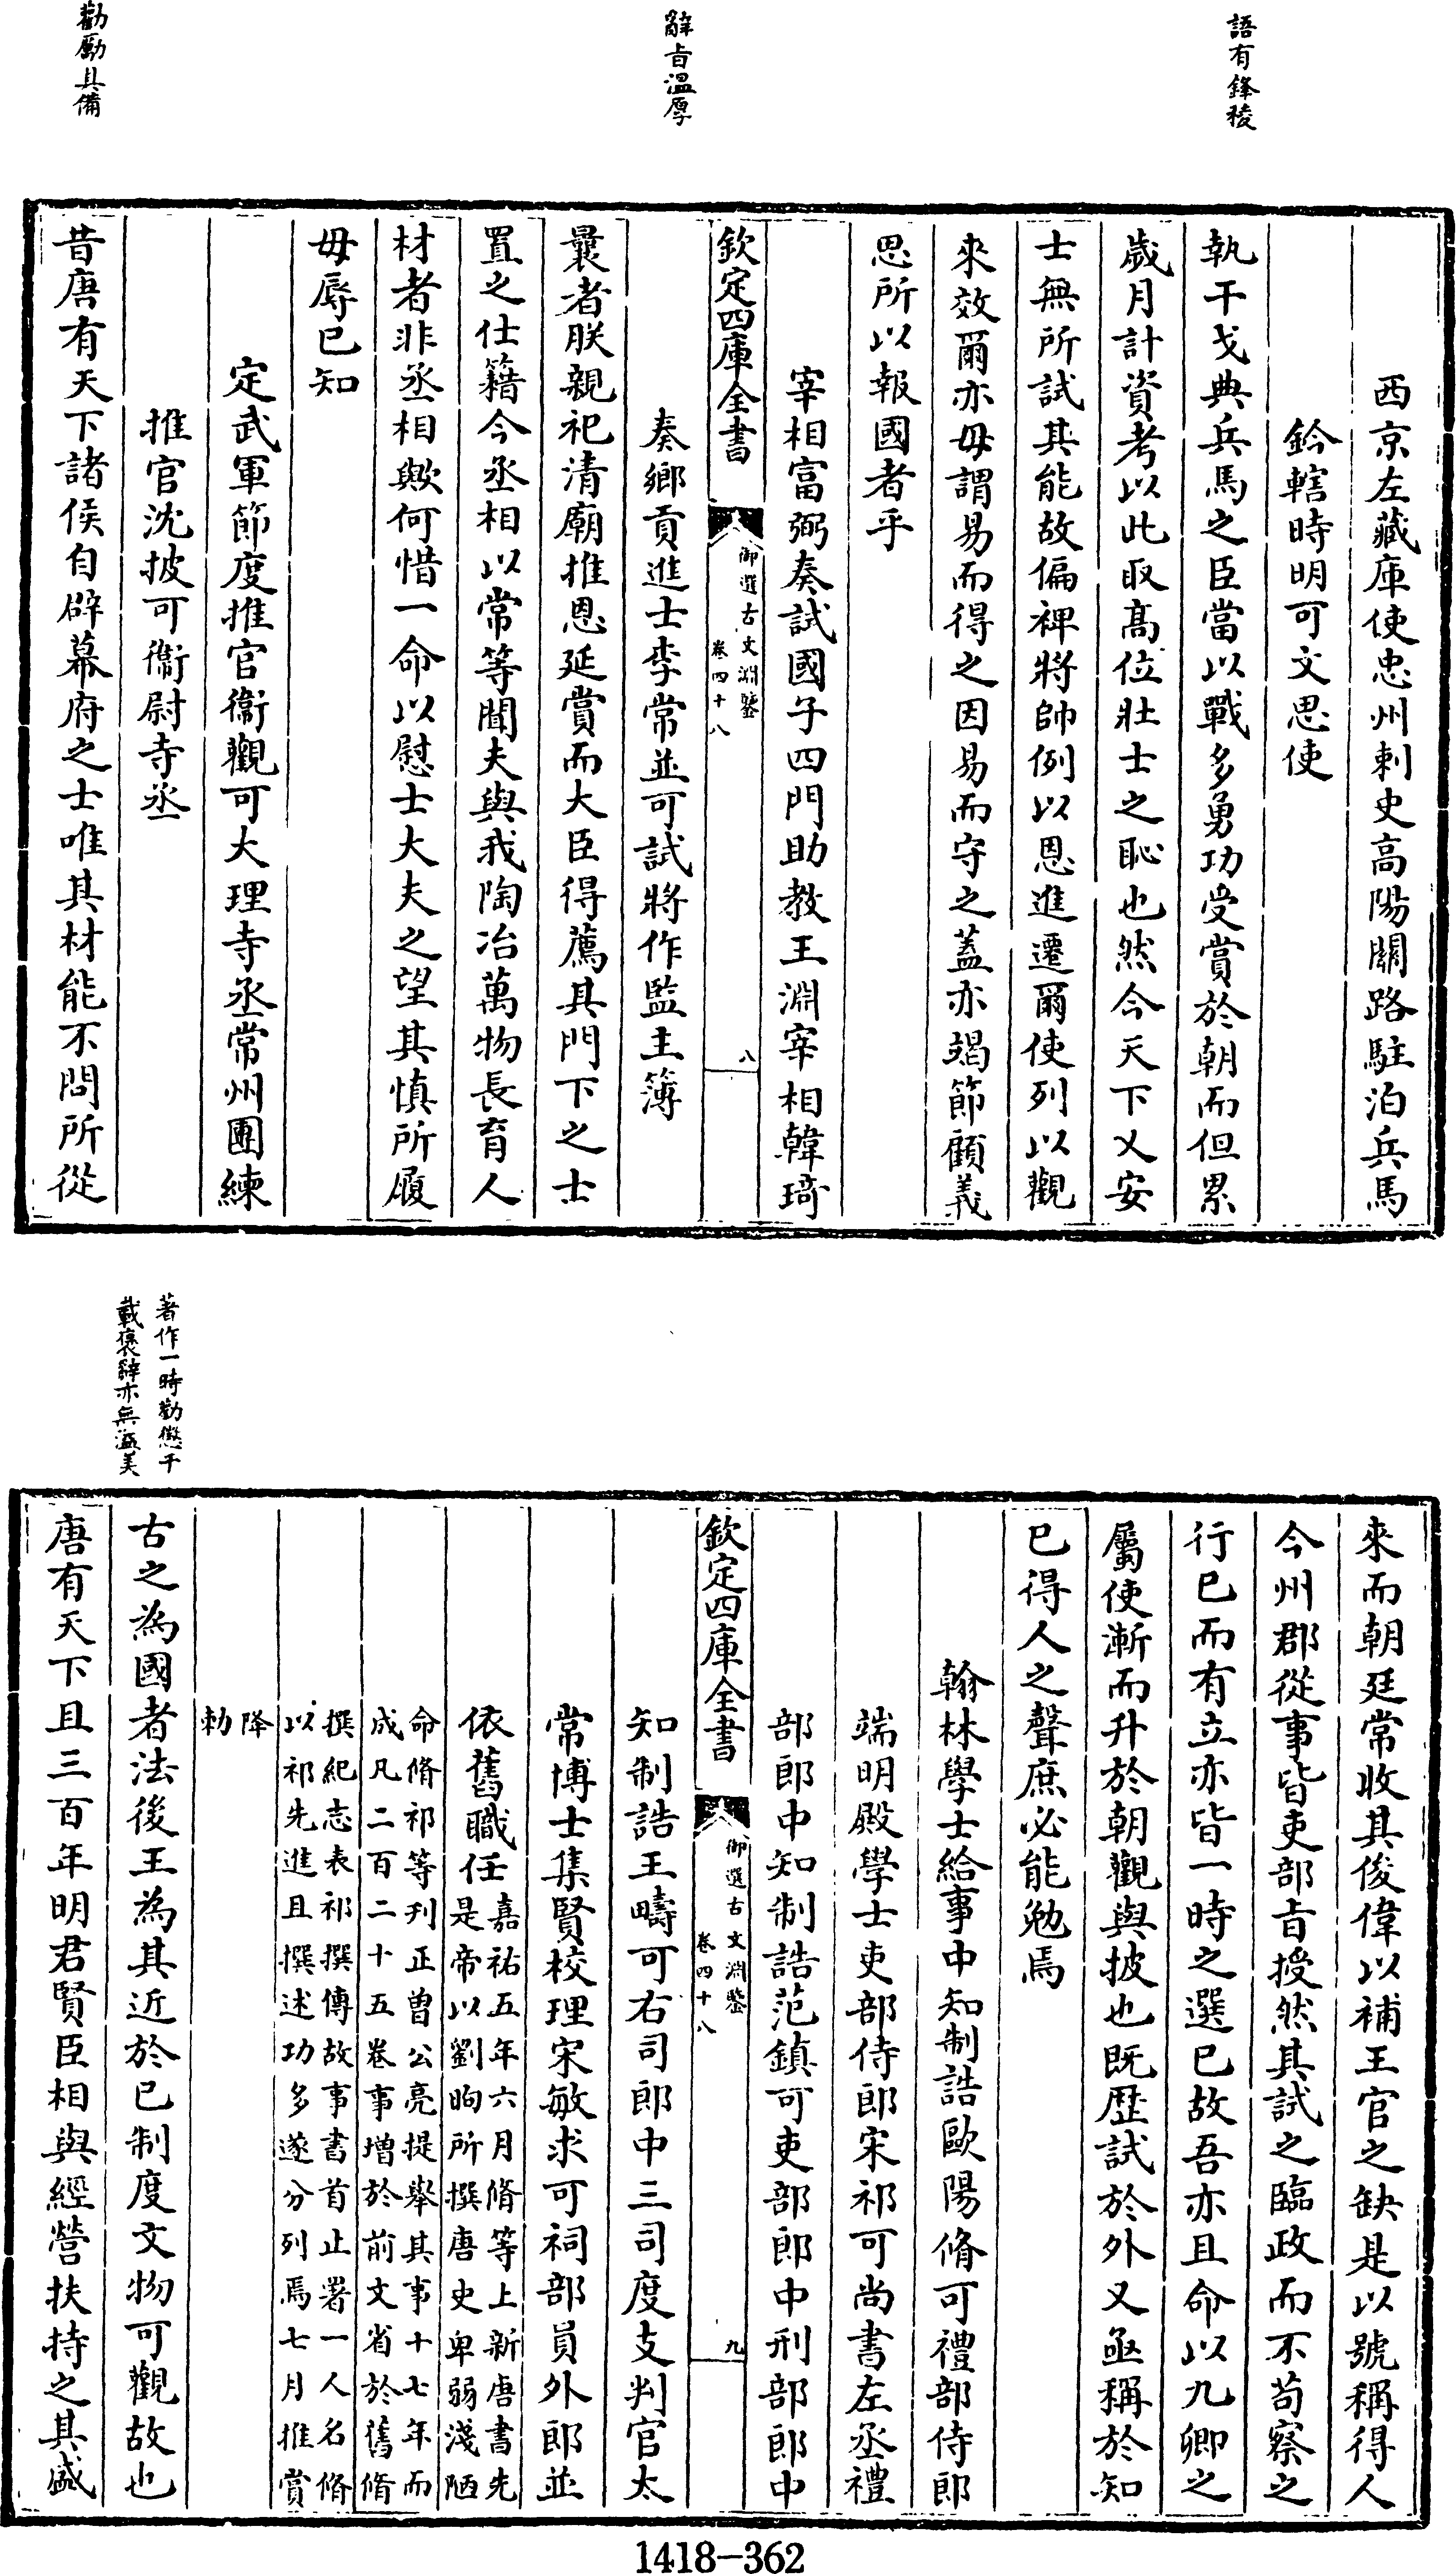 語有鋒稜
辭旨溫厚
勸勵具備
西京左藏庫使忠州刺史高陽關路駐泊兵馬
鈐轄時明可文思使
執干戈典兵馬之臣當以戰多勇功受賞於朝而但累
歲月計資考以此取高位壯士之恥也然今天下乂安
士無所試其能故偏裨將帥例以恩進遷爾使列以觀
來效爾亦毋謂易而得之因易而守之蓋亦竭節顧義
思所以報國者乎
宰相富弼奏試國子四門助教王淵宰相韓琦
欽定四庫全書
御選古文淵鑒
卷四十八
八
奏鄉貢進士李常並可試將作監主簿
曩者朕親祀清廟推恩延賞而大臣得薦其門下之士
置之仕籍今丞相以常等聞夫與我陶冶萬物長育人
材者非丞相歟何惜一命以慰士大夫之望其慎所履
毋辱已知
定武軍節度推官衞觀可大理寺丞常州團練
推官沈披可衞尉寺丞
昔唐有天下諸侯自辟幕府之士唯其材能不問所從
著作一時勸懲千
載褒辭亦無溢美
來而朝廷常收其俊偉以補王官之缺是以號稱得人
今州郡從事皆吏部旨授然其試之臨政而不苟察之
行已而有立亦皆一時之選已故吾亦且命以九卿之
屬使漸而升於朝觀與披也既歷試於外又亟稱於知
已得人之聲庶必能勉焉
翰林學士給事中知制誥歐陽脩可禮部侍郎
端明殿學士吏部侍郎宋祁可尚書左丞禮
部郎中知制誥范鎮可吏部郎中刑部郎中
欽定四庫全書
御選古文淵鑒
卷四十八
九
知制誥王疇可右司郎中三司度支判官太
常博士集賢校理宋敏求可祠部員外郎並
依舊職任
嘉祐五年六月脩等上新唐書先
是帝以劉昫所撰唐史卑弱淺陋
命脩祁等刊正曾公亮提舉其事十七年而
成凡二百二十五卷事增於前文省於舊脩
撰紀志表祁撰傳故事書首止署一人名脩
以祁先進且撰述功多遂分列焉七月推賞
降
勅
古之為國者法後王為其近於已制度文物可觀故也
唐有天下且三百年明君賢臣相與經營扶持之其盛
1418-362